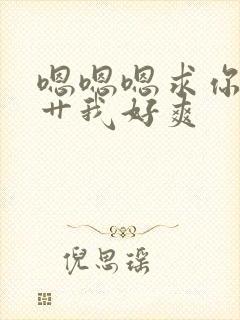 嗯嗯嗯求你
艹我好爽
倪思瑶